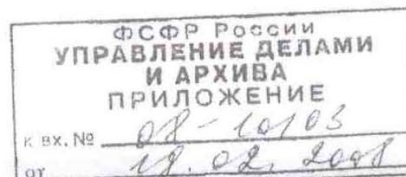 ФСФР России
УПРАВЛЕНИЕ ДЕЛАМИ
И АРХИВА
ПРИЛОЖЕНИЕ
к вх. № 08-10103
от 18.02.2008